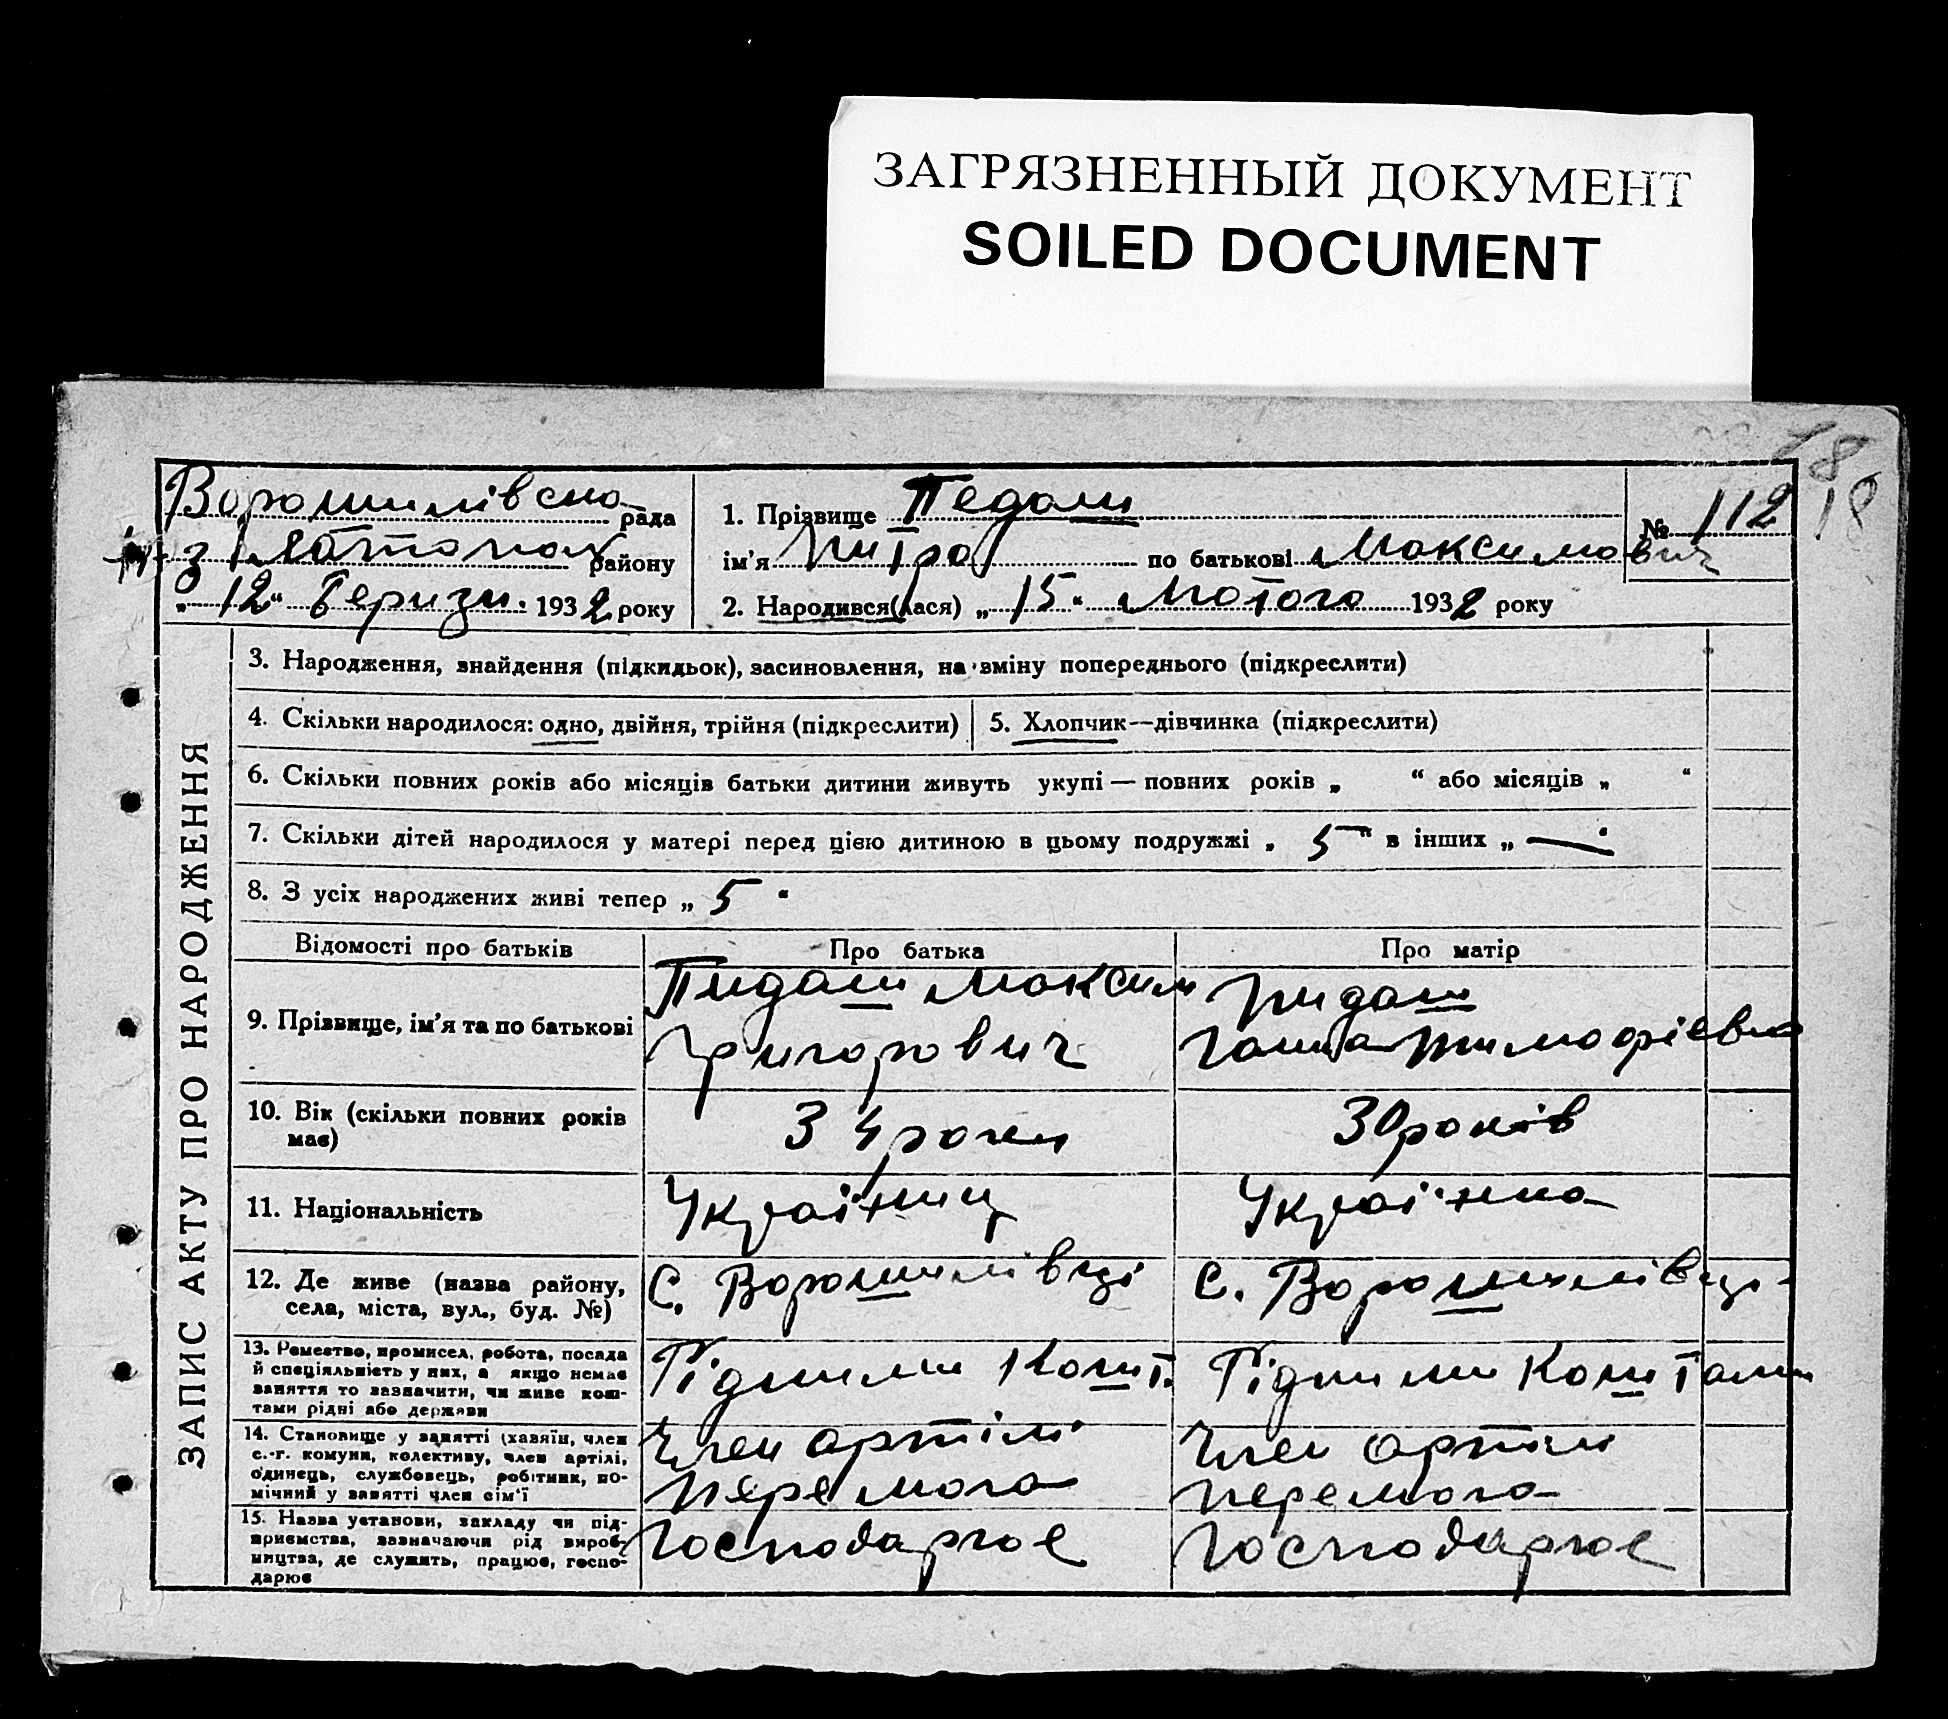 ЗАГРЯЗНЕННЫЙ ДОКУМЕНТ
SOILED DOCUMENT
18
18
Ворошилівська рада
району
„12“ Берізн. 1932 року
1. Прізвище Педаш
ім'я Питро по батькові Максимович
2. Народився(лася) „15“ Лютого 1932 року
№ 112
ЗАПИС АКТУ ПРО НАРОДЖЕННЯ
3. Народження, знайдення (підкидьок), засиновлення, на зміну попереднього (підкреслити)
4. Скільки народилося: одно, двійня, трійня (підкреслити)
5. Хлопчик—дівчинка (підкреслити)
6. Скільки повних років або місяців батьки дитини живуть укупі — повних років „ “ або місяців „ “
7. Скільки дітей народилося у матері перед цією дитиною в цьому подружжі „ 5 “ в інших „ — “
8. З усіх народжених живі тепер „ 5 “
Відомості про батьків
Про батька
Про матір
9. Прізвище, ім'я та по батькові
Пидаш Максим
Григорович
Пидаш
Ганна Тимофієвна
10. Вік (скільки повних років
має)
34 роки
30 років
11. Національність
Українец
Українка
12. Де живе (назва району,
села, міста, вул., буд. №)
С. Ворошилівці
С. Ворошилівці
13. Ремество, промисел, робота, посада
й спеціяльність у них, а якщо немає
заняття то зазначити, чи живе кош-
тами рідні або держави
Рідними Кошт.
Рідними Коштами
14. Становище у занятті (хазяїн, член
с.-г. комуни, колективу, член артілі,
одинець, службовець, робітник, по-
мічний у занятті член сім'ї
Член артілі
Перемога
Член артілі
Перемога
15. Назва установи, закладу чи під-
приємства, зазначаючи рід вироб-
ництва, де служить, працює, госпо-
дарює
Господарює
Господарює